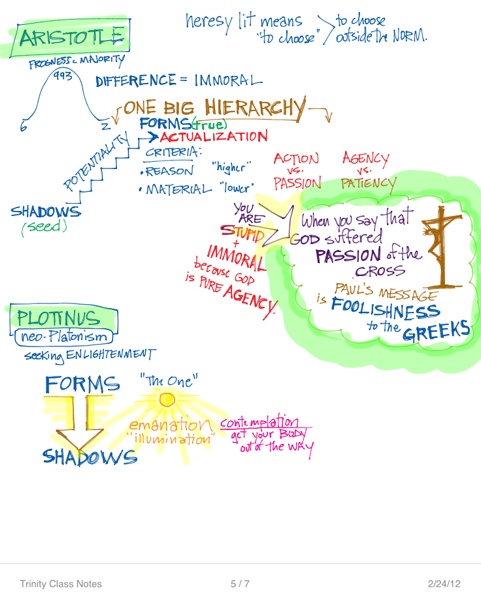 ARISTOTLE
heresy lit means
"to choose"
to choose
outside the NORM.
PROGNESS = MAJORITY
993
6
2
DIFFERENCE = IMMORAL
ONE BIG HIERARCHY
FORMS (true)
ACTUALIZATION
POTENTIALITY
CRITERIA:
• REASON "higher"
• MATERIAL "lower"
SHADOWS
(seed)
ACTION
vs.
PASSION
AGENCY
vs.
PATIENCY
YOU
ARE
STUPID
+
IMMORAL
because GOD
is PURE AGENCY.
When you say that
GOD suffered
PASSION of the
CROSS
PAUL'S MESSAGE
is FOOLISHNESS
to the GREEKS
PLOTINUS
neo-Platonism
seeking ENLIGHTENMENT
FORMS
"The One"
emanation
"illumination"
contemplation
get your BODY
out of the WAY
SHADOWS
Trinity Class Notes
5 / 7
2/24/12